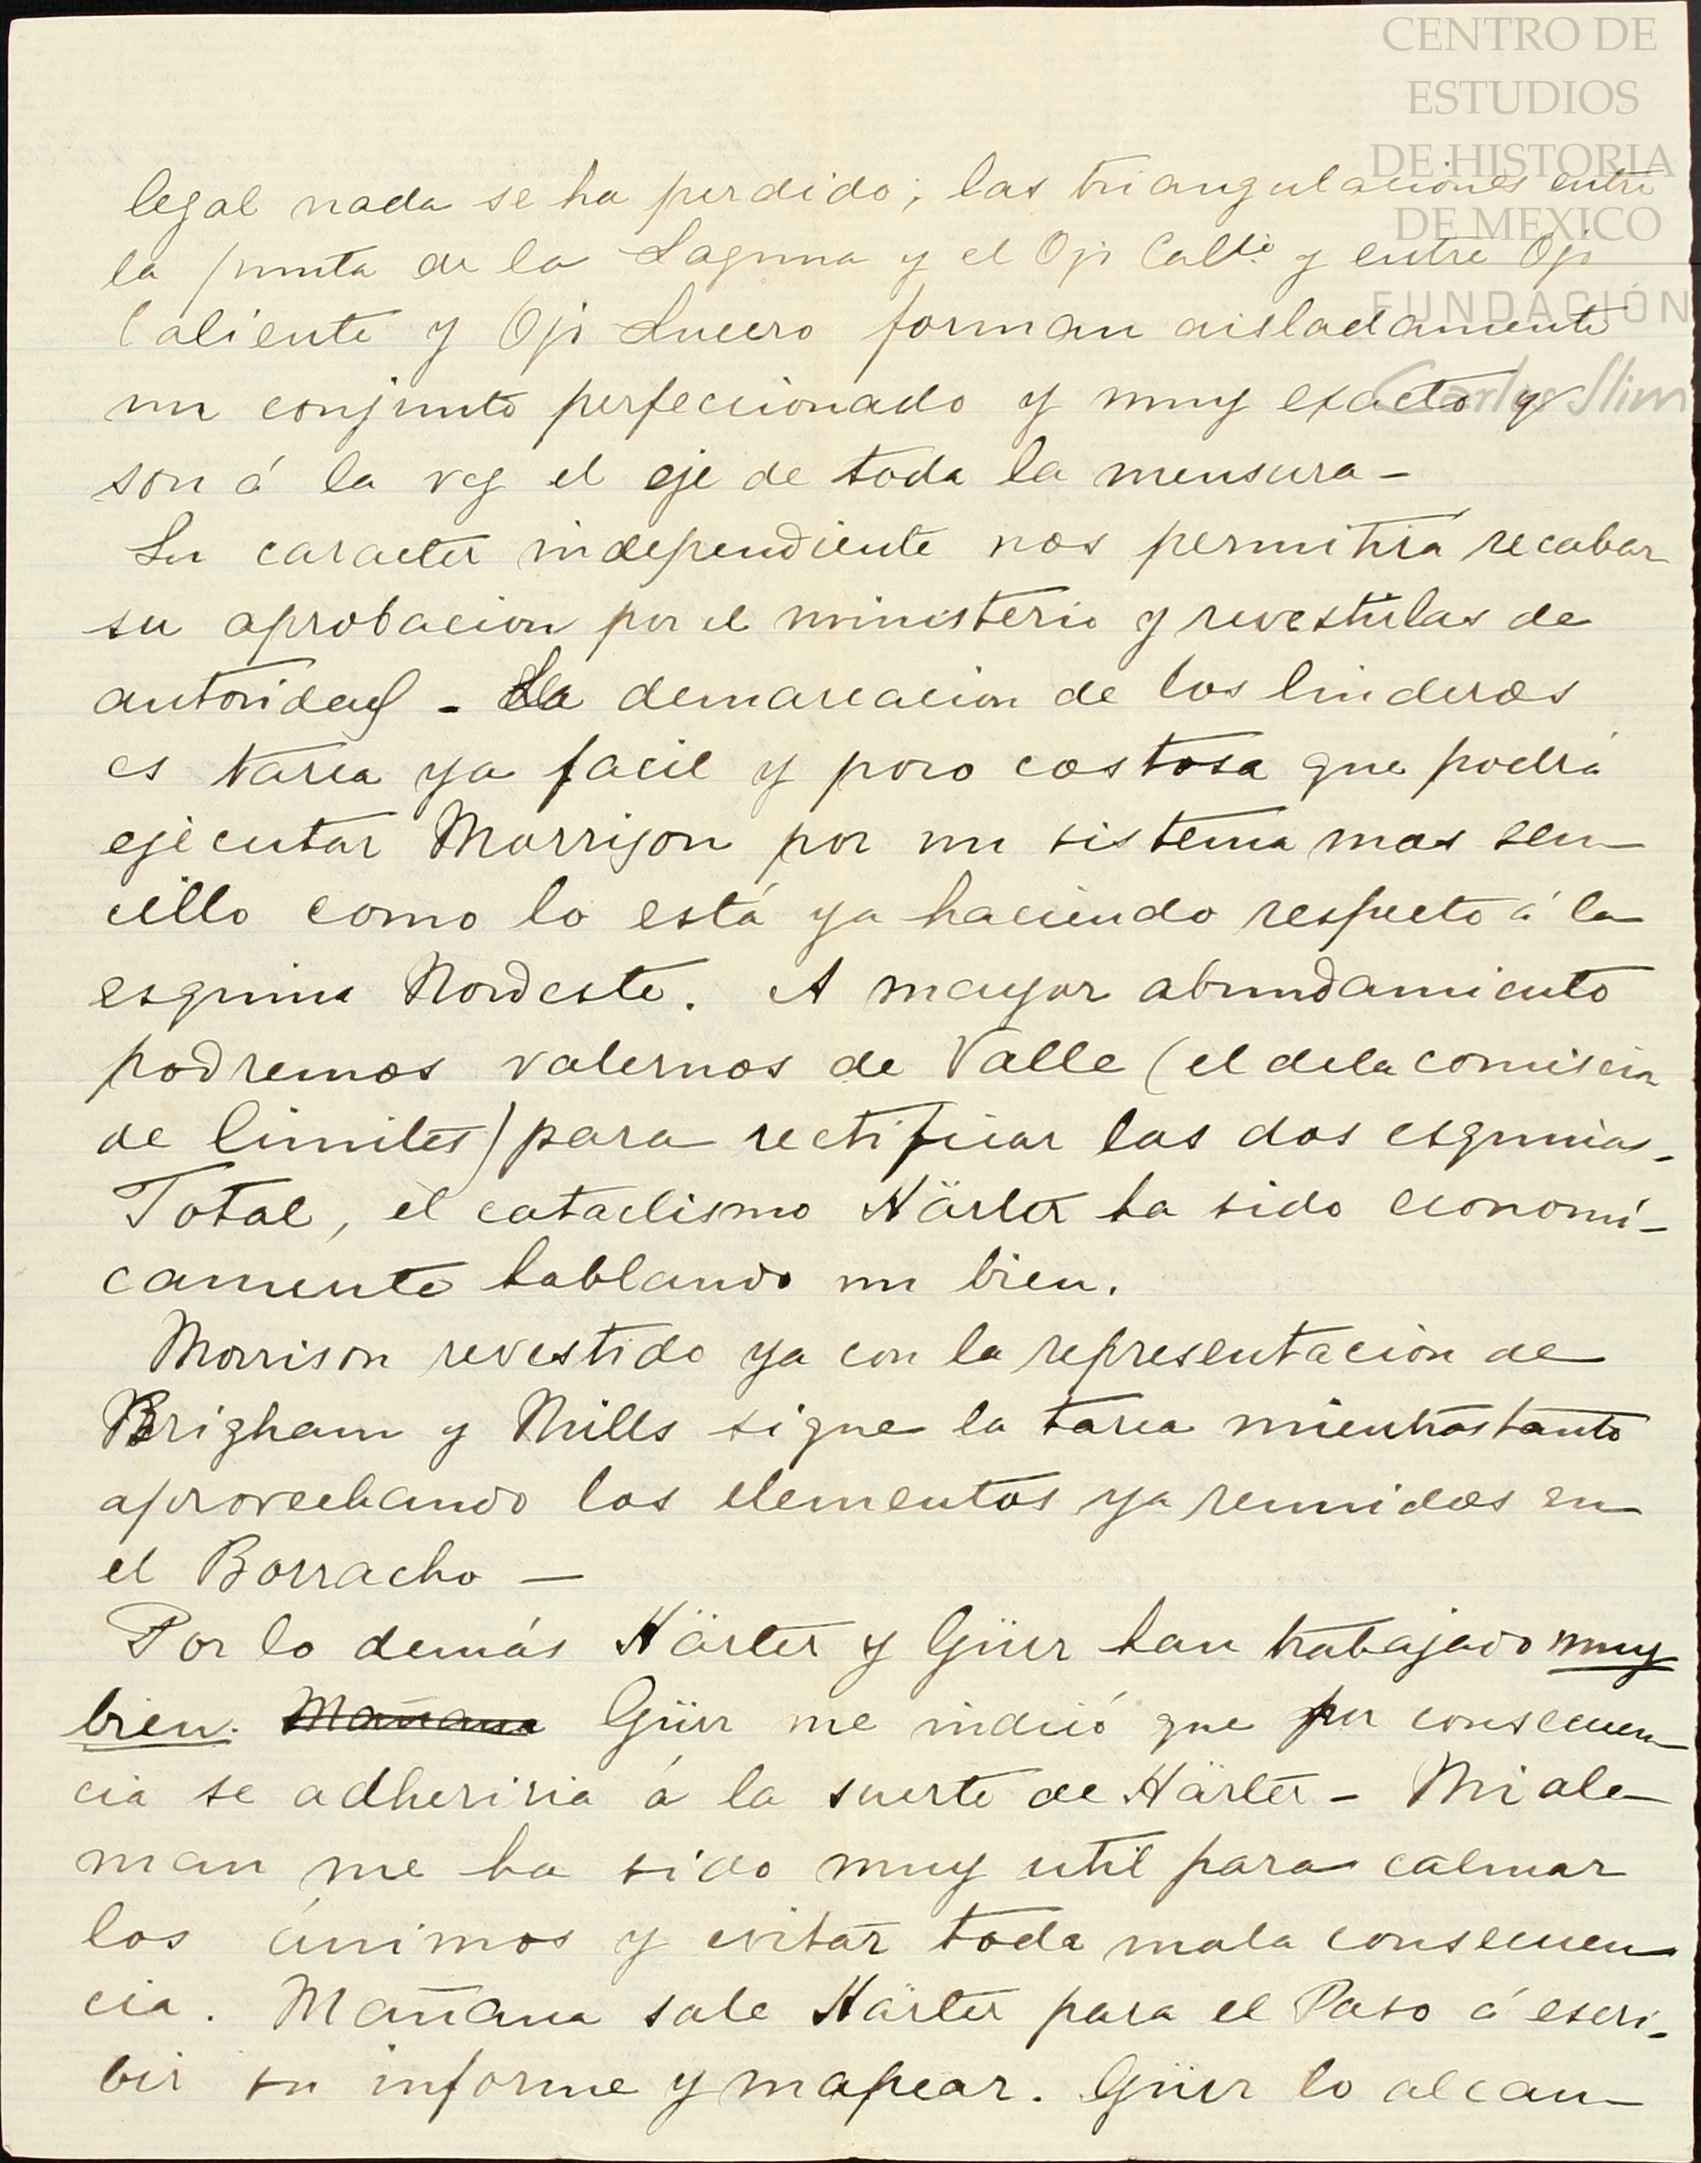 CENTRO DE
ESTUDIOS
DE HISTORIA
DE MEXICO
FUNDACIÓN
Carlos Slim
legal nada se ha perdido; las triangulaciones entre
la punta de la Laguna y el Ojo Calte. y entre Ojo
Caliente y Ojo Lucero forman aisladamente
un conjunto perfeccionado y muy exacto y
son á la vez el eje de toda la mensura -
Su caracter independiente nos permitirá recabar
su aprobacion por el ministerio y revestirlas de
autoridad - La demarcacion de los linderos
es tarea ya facil y poco costosa que podrá
ejecutar Morrison por un sistema mas sen
cillo como lo está ya haciendo respecto á la
esquina Nordeste. A mayor abundamiento
podremos valernos de Valle (el de la comision
de limites) para rectificar las dos esquinas.
Total, el cataclismo Härter ha sido economi-
camente hablando un bien.
Morrison revestido ya con la representacion de
Brigham y Mills sigue la tarea mientrastanto
aprovechando los elementos ya reunidos en
el Borracho —
Por lo demás Härter y Güur han trabajado muy
bien. Mañana Güur me indicó que por consecuen
cia se adheriria á la suerte de Härter - Mi ale
man me ha sido muy util para calmar
los ánimos y evitar toda mala consecuen
cia. Mañana sale Härter para el Paso á escri-
bir su informe y mapear. Güur lo alcan